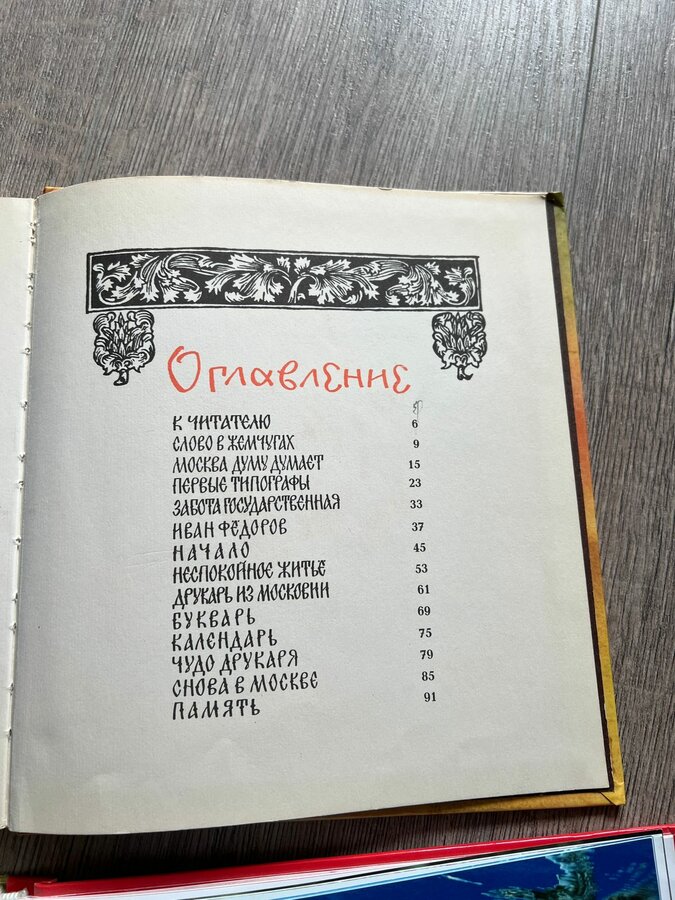 Оглавление
К ЧИТАТЕЛЮ 6
СЛОВО В ЖЕМЧУГАХ 9
МОСКВА ДУМУ ДУМАЕТ 15
ПЕРВЫЕ ТИПОГРАФЫ 23
ЗАБОТА ГОСУДАРСТВЕННАЯ 33
ИВАН ФЁДОРОВ 37
НАЧАЛО 45
НЕСПОКОЙНОЕ ЖИТЬЕ 53
ДРУКАРЬ ИЗ МОСКОВИИ 61
БУКВАРЬ 69
КАЛЕНДАРЬ 75
ЧУДО ДРУКАРЯ 79
СНОВА В МОСКВЕ 85
ПАМЯТЬ 91